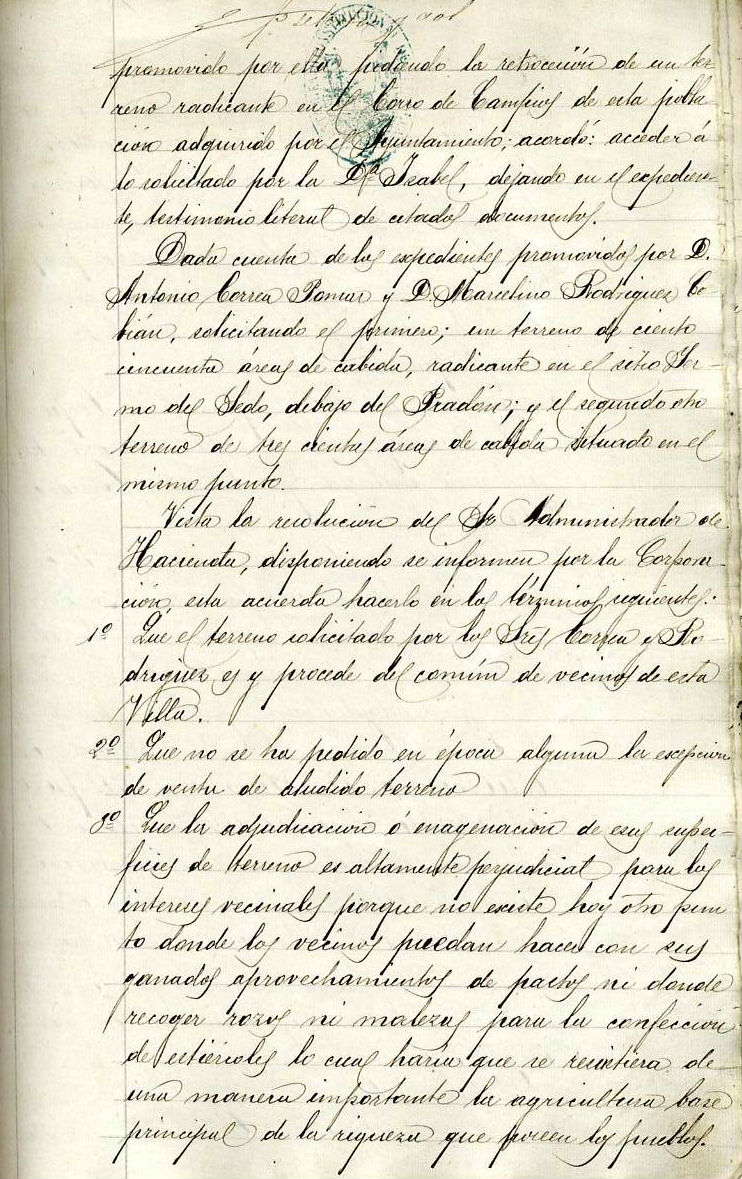 promovido por ella pidiendo la retrocesión de un ter-
reno radicante en el Corro de Campios de esta pobla-
ción adquirido por el Ayuntamiento; acordó: acceder á
lo solicitado por la Dª Isabel, dejando en el expedien-
te, testimonio literal de citados documentos.
Dada cuenta de los expedientes promovidos por D.
Antonio Correa Pomar y D. Marcelino Rodriguez Co-
bián, solicitando el primero; un terreno de ciento
cincuenta áreas de cabida, radicante en el sitio Yer-
mo del Sedo, debajo del Pradón; y el segundo otro
terreno de tres cientas áreas de cabida situado en el
mismo punto.
Vista la resolución del Sr Administrador de
Hacienda, disponiendo se informen por la Corpora-
ción, esta acuerda hacerlo en los términos siguientes:
1º Que el terreno solicitado por los Sres Correa y Ro-
driguez es y procede del común de vecinos de esta
Villa.
2º Que no se ha pedido en época alguna la escepción
de venta de aludido terreno
3º Que la adjudicación ó enagenación de esas super-
ficies de terreno es altamente perjudicial para los
intereses vecinales porque no existe hoy otro pun
to donde los vecinos puedan hacer con sus
ganados aprovechamientos de pastos ni donde
recoger rozos ni malezas para la confección
de estiércoles lo cual haría que se resintiera de
una manera importante la agricultura base
principal de la riqueza que poseen los pueblos.